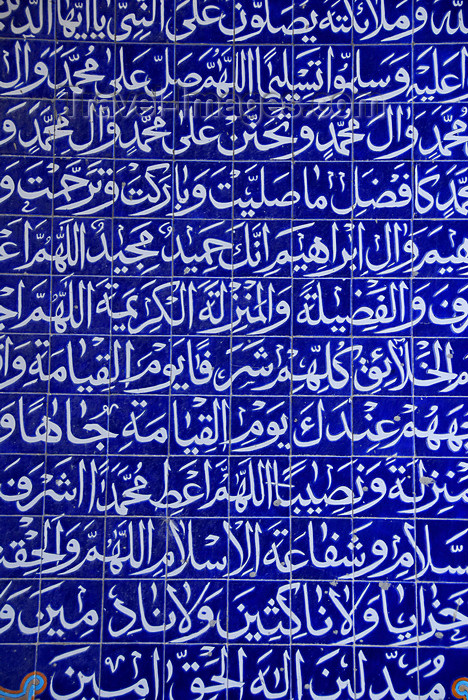 لله وملائكته يصلون على النبي يا ايها الذي
ا عليه وسلموا تسليما اللهم صل على محمد وال
محمد وال محمد وتحنن على محمد وال محمد و
مد كافضل ما صليت وباركت وترحمت و
هيم وال ابراهيم انك حميد مجيد اللهم اع
ف والفضيلة والمنزلة الكريمة اللهم اج
م الخلائق كلهم شرفا يوم القيامة وا
ههم عندك يوم القيامة جاها و
منزلة ونصيبا اللهم اعط محمدا اشرف
سلام وشفاعة الاسلام اللهم والحقن
خزايا ولا ناكثين ولا نادمين و
مبدلين اله الحق امين